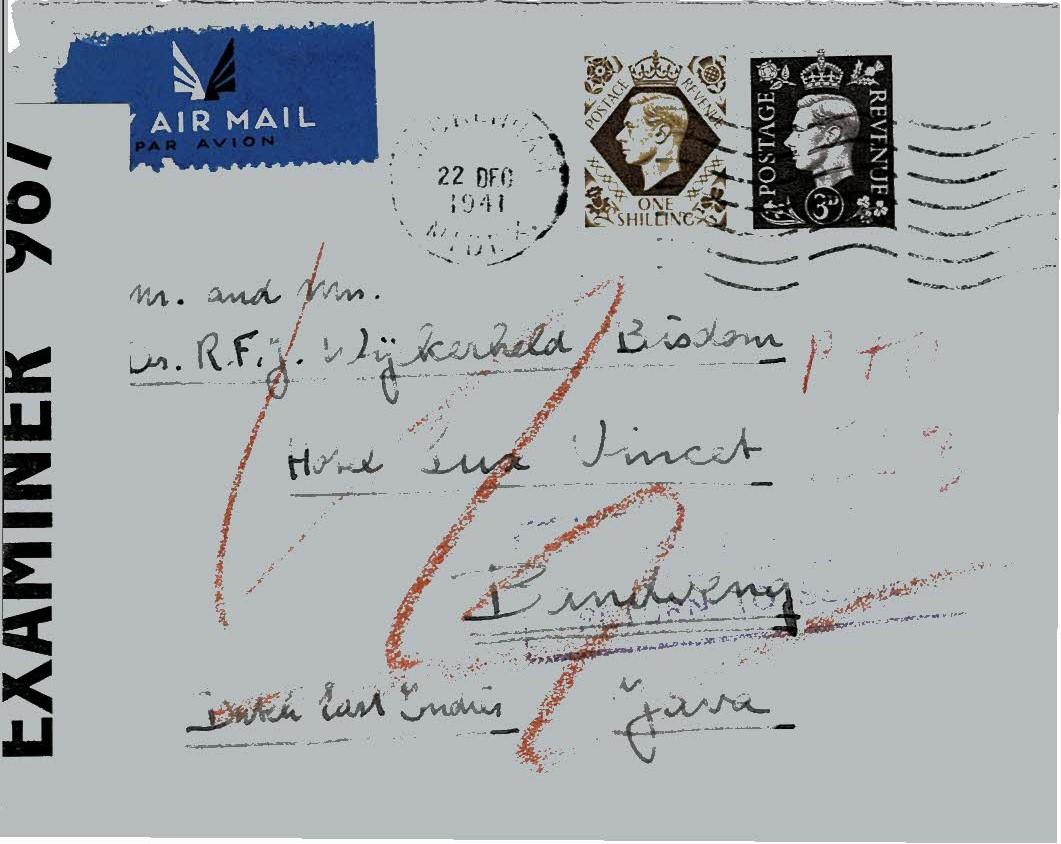 AIR MAIL
PAR AVION
22 DEC
1941
POSTAGE REVENUE
ONE
SHILLING
POSTAGE REVENUE
3D
EXAMINER 967
Mr. and Mrs.
Dr. R.F.J. Wijkerheld Bisdom
Hotel Lux Vincet
Bandoeng
RETURN TO
Dutch East Indies Java